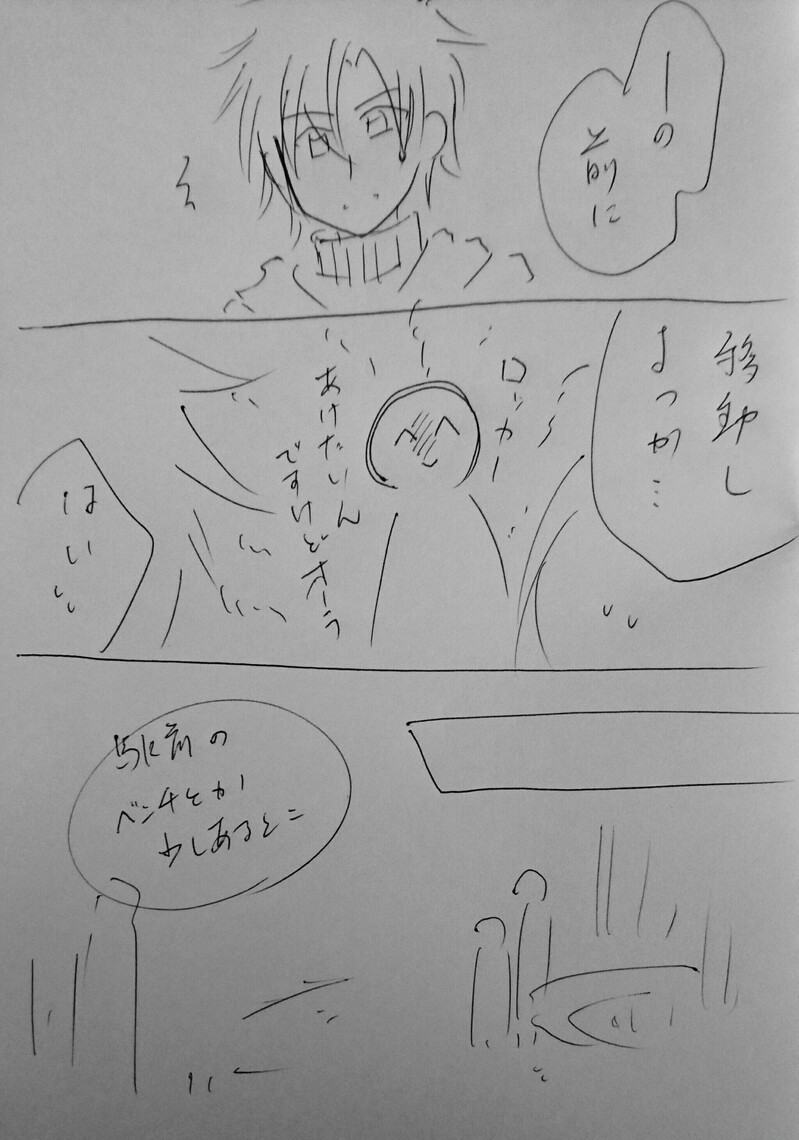 ーの
と前に
移動し
まっか…
ロッカー
あけたいん
ですけどオーラ
はい
駅前の
ベンチとか
少しあるとこ